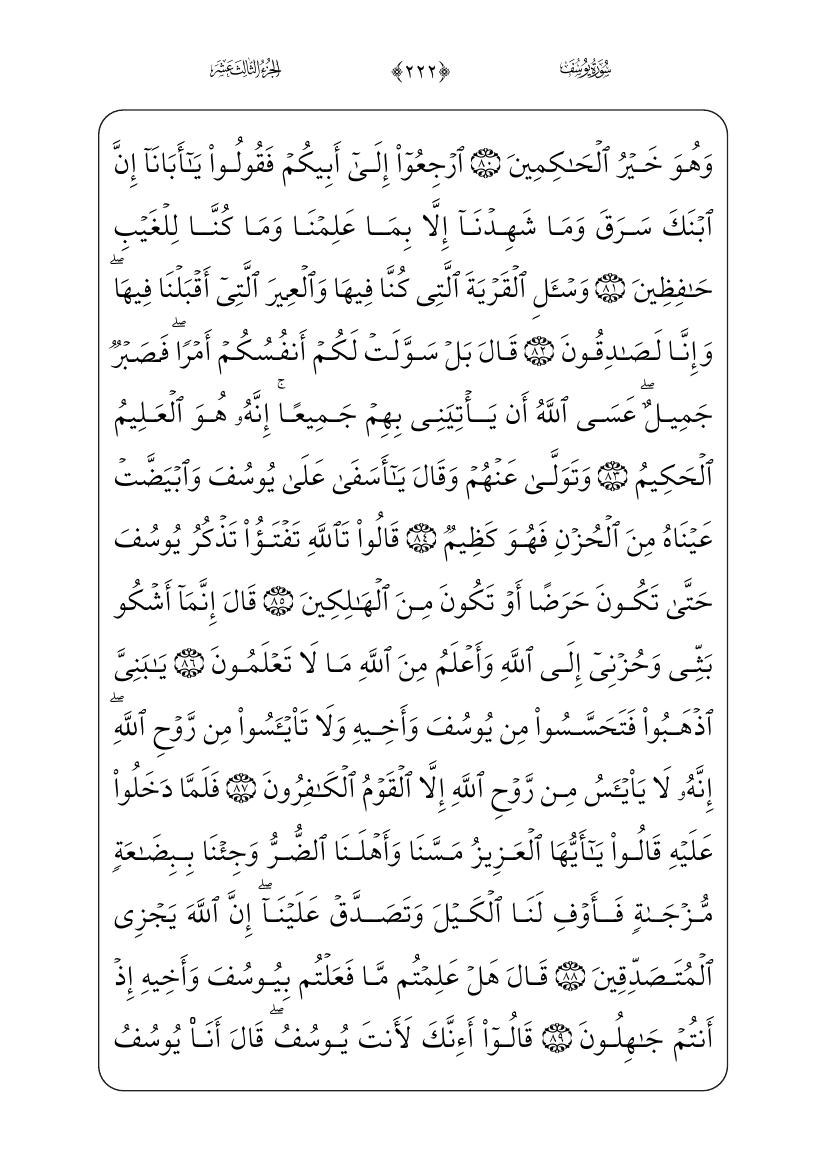 سُورَةُ يُوسُفَ ﴿٢٢٢﴾ الجُزْءُ الثَّالِثَ عَشَرَ
وَهُوَ خَيۡرُ ٱلۡحَٰكِمِينَ ٨٠ ٱرۡجِعُوٓاْ إِلَىٰٓ أَبِيكُمۡ فَقُولُواْ يَٰٓأَبَانَآ إِنَّ
ٱبۡنَكَ سَرَقَ وَمَا شَهِدۡنَآ إِلَّا بِمَا عَلِمۡنَا وَمَا كُنَّا لِلۡغَيۡبِ
حَٰفِظِينَ ٨١ وَسۡـَٔلِ ٱلۡقَرۡيَةَ ٱلَّتِي كُنَّا فِيهَا وَٱلۡعِيرَ ٱلَّتِيٓ أَقۡبَلۡنَا فِيهَاۖ
وَإِنَّا لَصَٰدِقُونَ ٨٢ قَالَ بَلۡ سَوَّلَتۡ لَكُمۡ أَنفُسُكُمۡ أَمۡرٗاۖ فَصَبۡرٞ
جَمِيلٌۖ عَسَى ٱللَّهُ أَن يَأۡتِيَنِي بِهِمۡ جَمِيعًاۚ إِنَّهُۥ هُوَ ٱلۡعَلِيمُ
ٱلۡحَكِيمُ ٨٣ وَتَوَلَّىٰ عَنۡهُمۡ وَقَالَ يَٰٓأَسَفَىٰ عَلَىٰ يُوسُفَ وَٱبۡيَضَّتۡ
عَيۡنَاهُ مِنَ ٱلۡحُزۡنِ فَهُوَ كَظِيمٞ ٨٤ قَالُواْ تَٱللَّهِ تَفۡتَؤُاْ تَذۡكُرُ يُوسُفَ
حَتَّىٰ تَكُونَ حَرَضًا أَوۡ تَكُونَ مِنَ ٱلۡهَٰلِكِينَ ٨٥ قَالَ إِنَّمَآ أَشۡكُواْ
بَثِّي وَحُزۡنِيٓ إِلَى ٱللَّهِ وَأَعۡلَمُ مِنَ ٱللَّهِ مَا لَا تَعۡلَمُونَ ٨٦ يَٰبَنِيَّ
ٱذۡهَبُواْ فَتَحَسَّسُواْ مِن يُوسُفَ وَأَخِيهِ وَلَا تَاْيۡـَٔسُواْ مِن رَّوۡحِ ٱللَّهِۖ
إِنَّهُۥ لَا يَاْيۡـَٔسُ مِن رَّوۡحِ ٱللَّهِ إِلَّا ٱلۡقَوۡمُ ٱلۡكَٰفِرُونَ ٨٧ فَلَمَّا دَخَلُواْ
عَلَيۡهِ قَالُواْ يَٰٓأَيُّهَا ٱلۡعَزِيزُ مَسَّنَا وَأَهۡلَنَا ٱلضُّرُّ وَجِئۡنَا بِبِضَٰعَةٖ
مُّزۡجَىٰةٖ فَأَوۡفِ لَنَا ٱلۡكَيۡلَ وَتَصَدَّقۡ عَلَيۡنَآۖ إِنَّ ٱللَّهَ يَجۡزِي
ٱلۡمُتَصَدِّقِينَ ٨٨ قَالَ هَلۡ عَلِمۡتُم مَّا فَعَلۡتُم بِيُوسُفَ وَأَخِيهِ إِذۡ
أَنتُمۡ جَٰهِلُونَ ٨٩ قَالُوٓاْ أَءِنَّكَ لَأَنتَ يُوسُفُۖ قَالَ أَنَا۠ يُوسُفُ